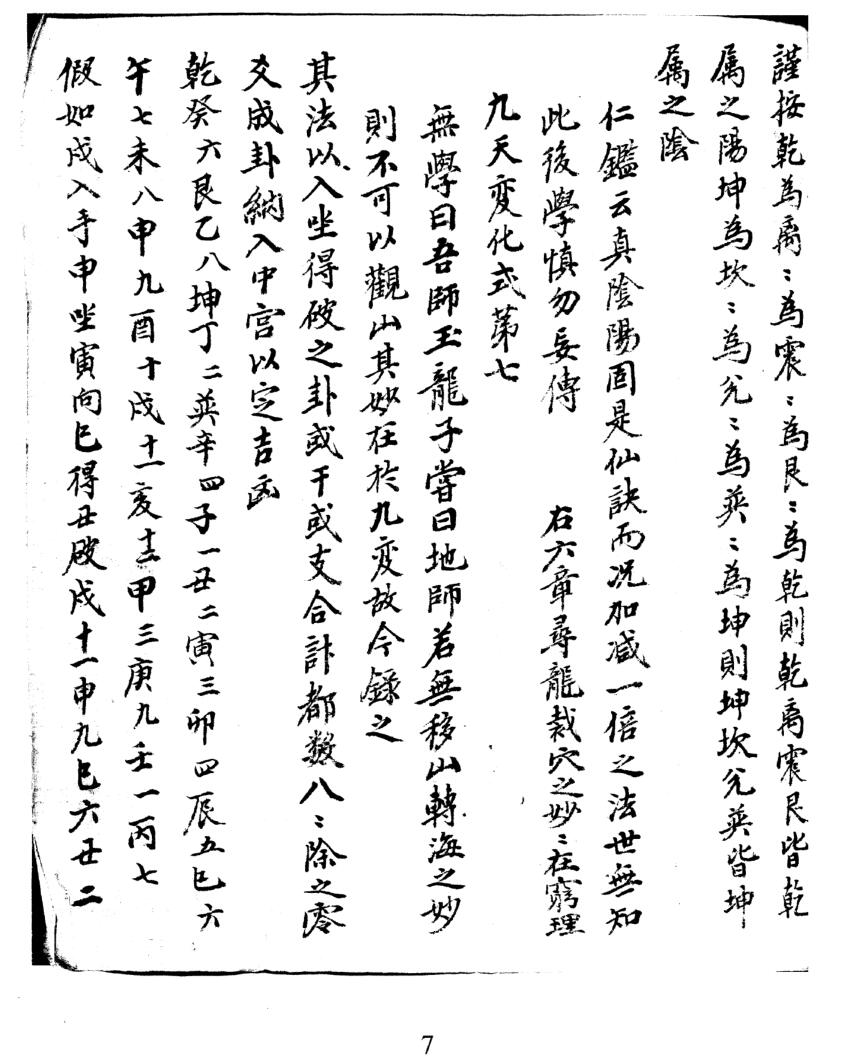 謹按乾為离〻為震〻為艮〻為乾則乾离震艮皆乾
属之陽坤為坎〻為兊〻為巽〻為坤則坤坎兊巽皆坤
属之陰
仁鑑云真陰陽固是仙訣而况加减一倍之法世無知
此後學慎勿妄傳　右六章尋龍裁穴之妙〻在窮理
九天変化式第七
無學曰吾師玉龍子嘗曰地師若無移山轉海之妙
則不可以觀山其妙在於九変故今錄之
其法以入坐得破之卦或干或支合計都数八〻除之零
爻成卦納入中宮以定吉凶
乾癸六艮乙八坤丁二巽辛四子一丑二寅三卯四辰五巳六
午七未八申九酉十戌十一亥十二甲三庚九壬一丙七
假如戌入手申坐寅向巳得丑破戌十一申九巳六丑二
7